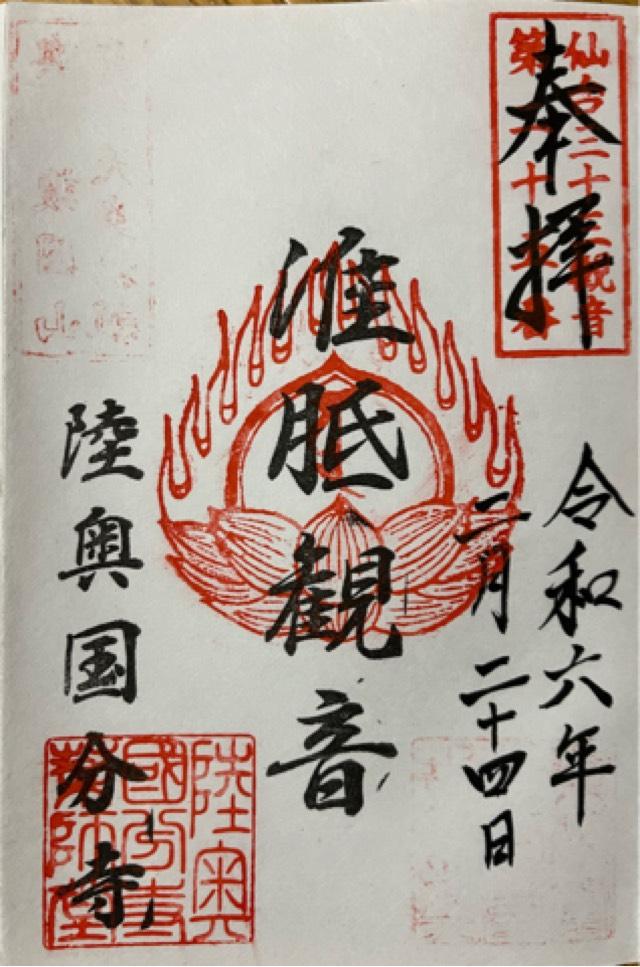 奉拝
仙台三十三観音
第二十五番
令和六年
二月二十四日
准胝観音
陸奥国分寺
陸奥
國分寺
薬師堂